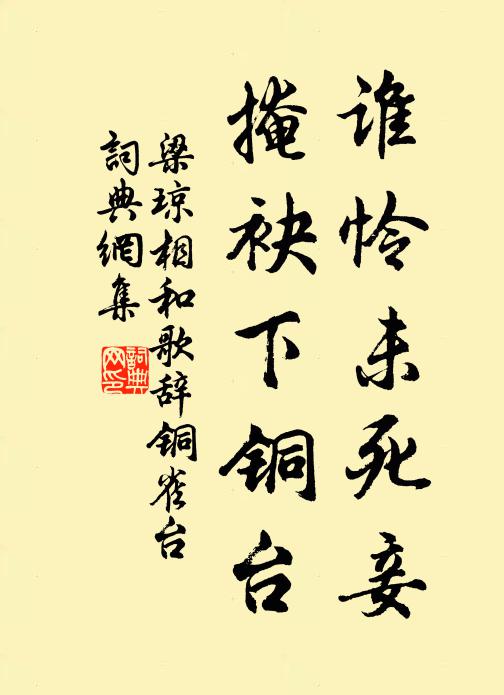 谁怜未死妾
掩袂下铜台
梁琼相和歌辞铜雀台
词典网集
詞典
网印